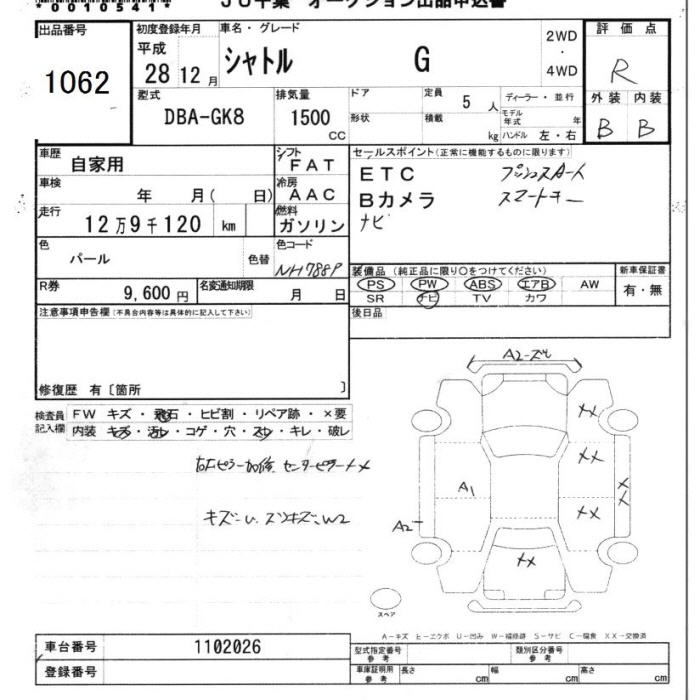 *0010541* JU千葉 オークション出品申込書
出品番号 初度登録年月 車名・グレード 2WD・4WD 評価点
1062 平成 28 12月 シャトル G R
型式 排気量 ドア 定員 5人 ディーラー・並行 外装 内装
DBA-GK8 1500 CC 形状 積載 kg モデル年式 年 ハンドル 左・右 B B
車歴 自家用 シフト FAT セールスポイント(正常に機能するものに限ります)
車検 年 月( 日) 冷房 AAC ETC プッシュスタート
走行 12万9千120 km 燃料 ガソリン Bカメラ スマートキー
ナビ
色 パール 色替 色コード NH788P
装備品(純正品に限り○をつけてください) 新車保証書
R券 9,600円 名変通知期限 月 日 PS PW ABS エアB AW 有・無
SR ナビ TV カワ
注意事項申告欄(不具合内容等は具体的に記入して下さい) 後日品
修復歴 有〔箇所 〕
A2-ズレ
検査員記入欄 FW キズ・飛石・ヒビ割・リペア跡・×要
内装 キズ・汚レ・コゲ・穴・スレ・キレ・破レ
センターピラー
キズ-U、W2
XX
XX
XX
XX
XX
A1
A2
スペア
A-キズ E-エクボ U-凹み W-補修跡 S-サビ C-腐食 XX-交換済
車台番号 1102026 型式指定番号 参考 類別区分番号 参考
登録番号 車庫証明用 参考 長さ cm 幅 cm 高さ cm